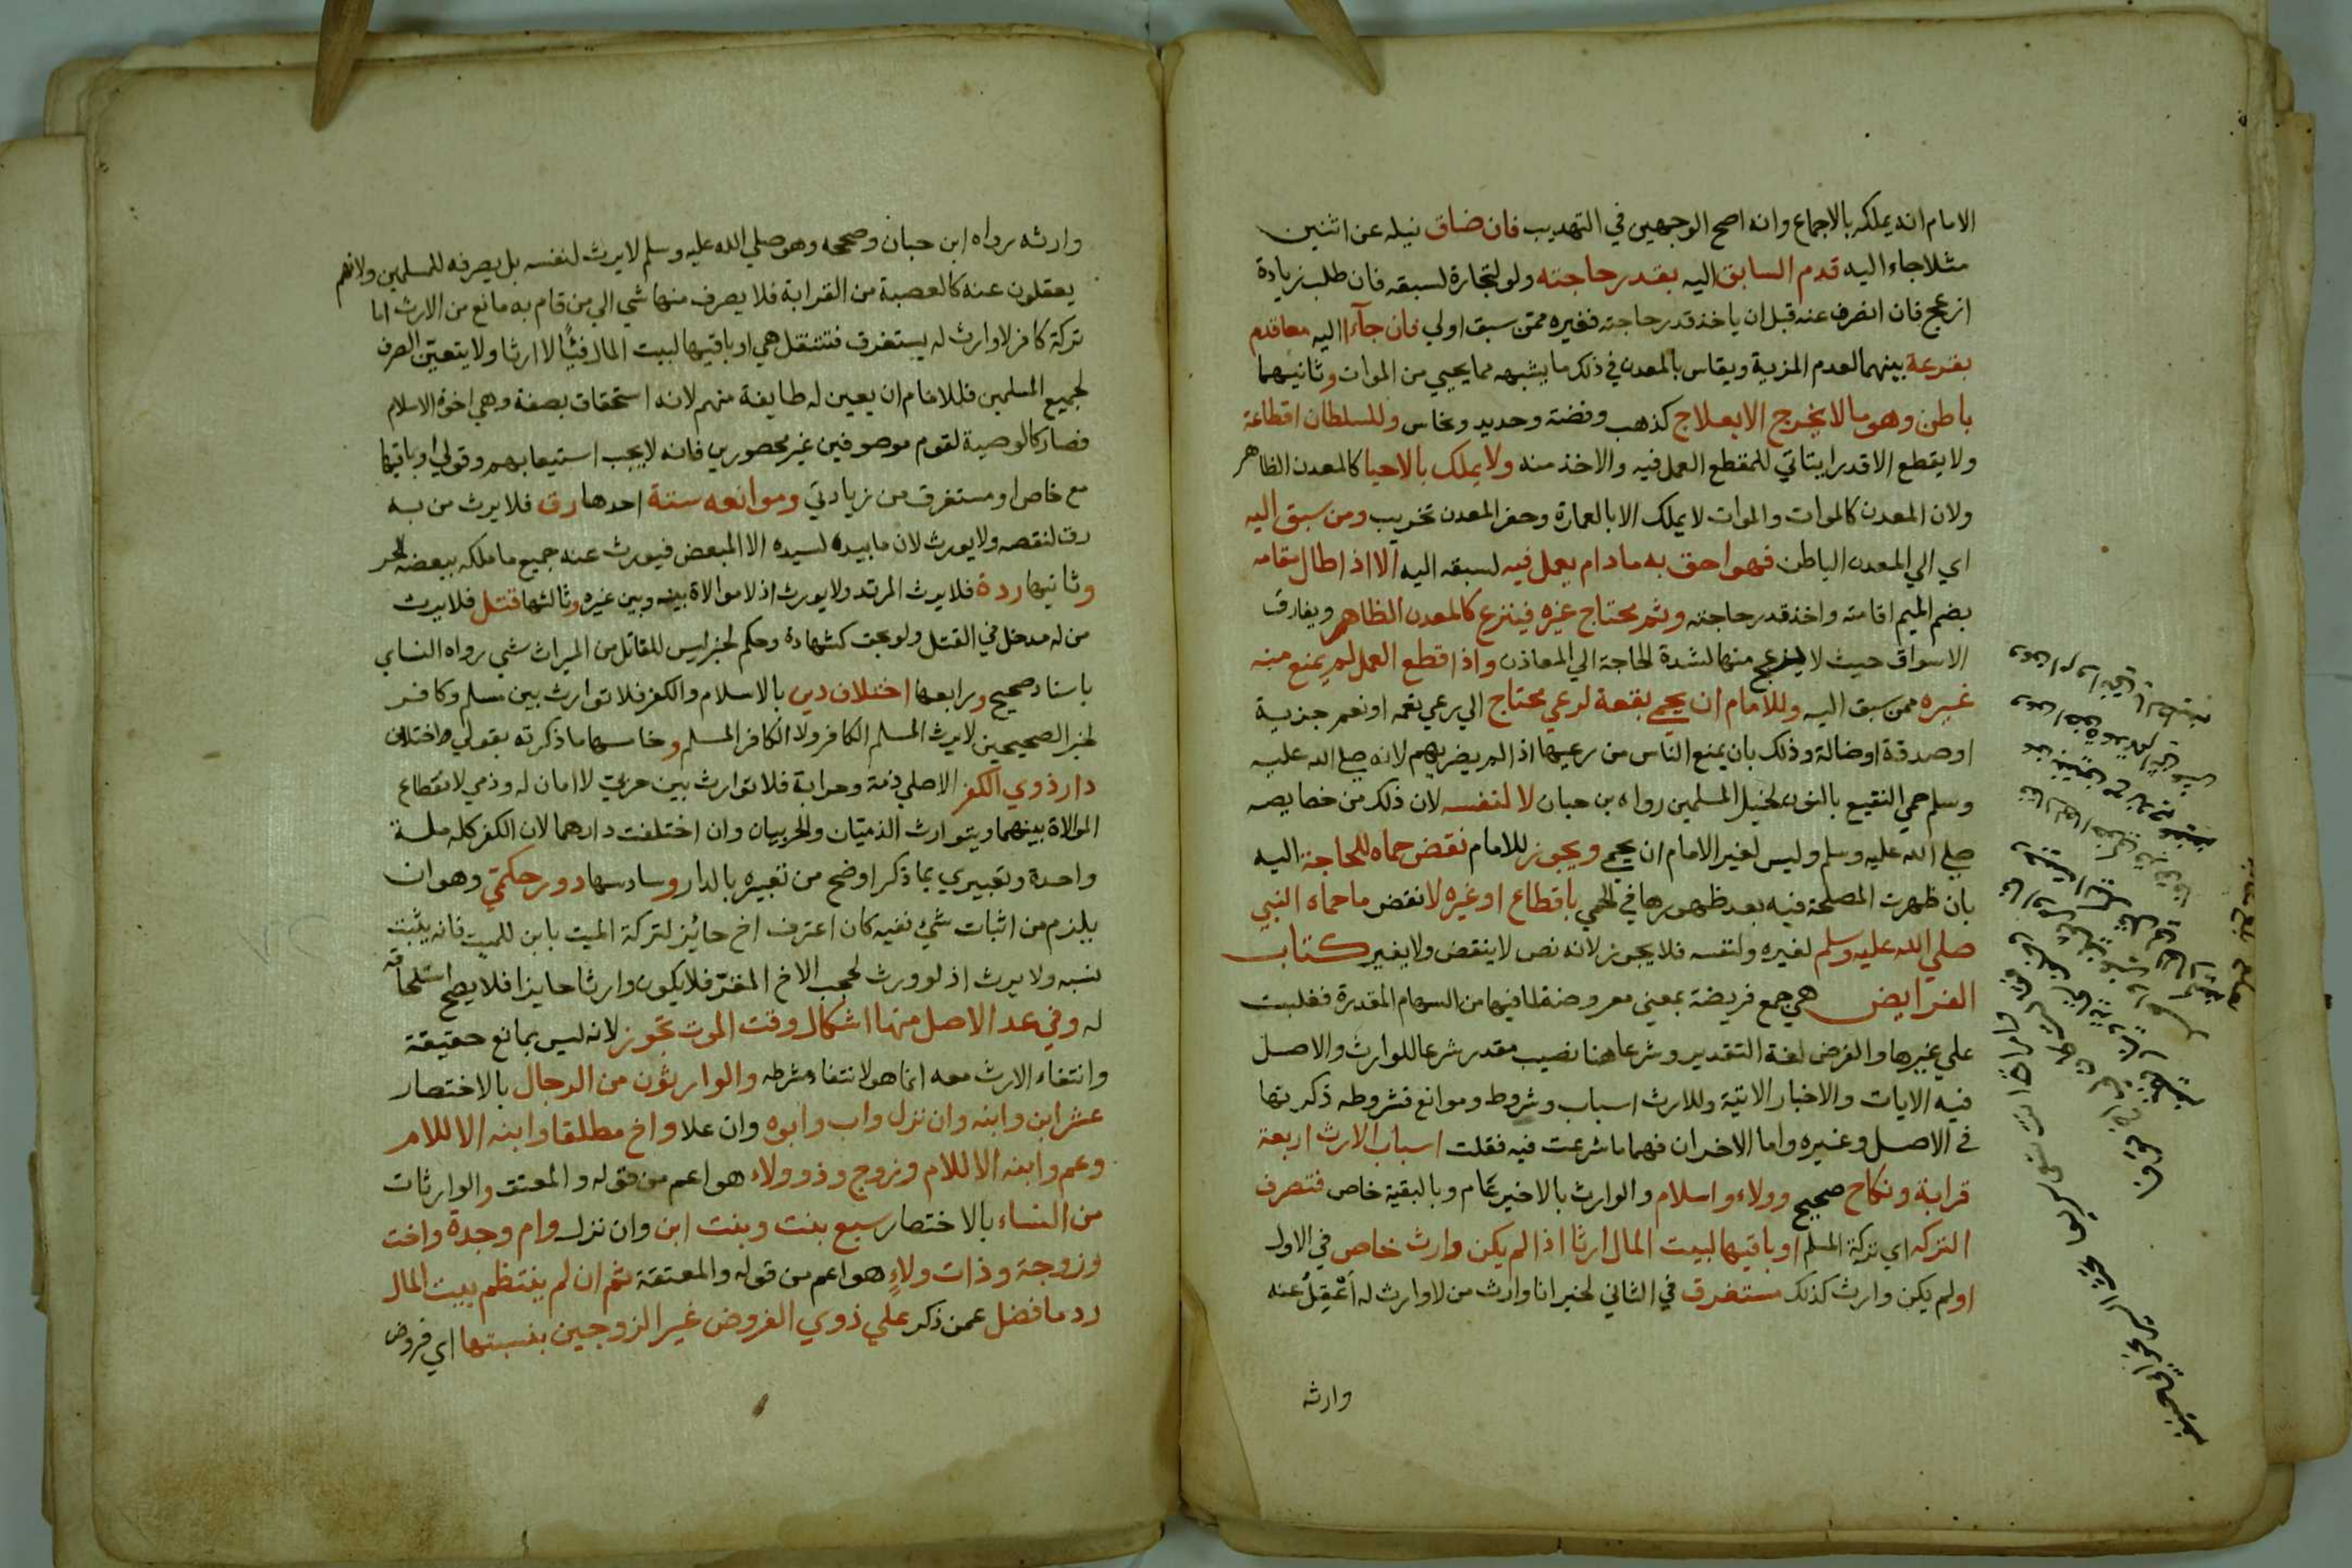 الامام انه يملكه بالاجماع وانه اصح الوجهين في التهديب فان ضاق نيله عن اثنين
مثلا جاءا اليه قدم السابق اليه بقدر حاجته ولو لتجارة لسبقه فان طلب زيادة
ازعج فان انصرف عنه قبل ان ياخذ قدر حاجته فغيره ممن سبق اولي فان جآءا اليه معا قدم
بقرعة بينهما لعدم المزية ويقاس بالمعدن في ذلك ما يشبهه مما يحيي من الموات وثانيهما
باطن وهو ما لا يخرج الا بعلاج كذهب وفضة وحديد ونحاس وللسلطان اقطاعه
ولا يقطع الا قدرا يتاتي للمقطع العمل فيه والاخذ منه ولا يملك بالاحيا كالمعدن الظاهر
ولان المعدن كالموات والموات لا يملك الا بالعمارة وحفر المعدن تخريب ومن سبق اليه
اي الي المعدن الباطن فهو احق به ما دام يعمل فيه لسبقه اليه الا اذا طال مقامه
بضم الميم اقامته واخذ قدر حاجته وثم محتاج غيره فينزع كالمعدن الظاهر ويفارق
الاسواق حيث لا يزعج منها لشدة الحاجة الي المعاذن واذا قطع العمل لم يمنع منه
غيره ممن سبق اليه وللامام ان يحمي بقعة لرعي محتاج الي رعي نعمه او نعم جزية
او صدقة او ضالة وذلك بان يمنع الناس من رعيها اذا لم يضر بهم لانه صلي الله عليه
وسلم حمي النقيع بالنون لخيل المسلمين رواه بن حبان لا لنفسه لان ذلك من خصايصه
صلي الله عليه وسلم وليس لغير الامام ان يحمي ويجوز للامام نقض حماه للحاجة اليه
بان ظهرت المصلحة فيه بعد ظهورها في الحمي باقطاع او غيره لا نقض ما حماه النبي
صلي الله عليه وسلم لغيره ولنفسه فلا يجوز لانه نص لا ينقض ولا يغير كتاب
الفرايض هي جمع فريضة بمعني مفروضة لما فيها من السهام المقدرة فغلبت
علي غيرها والفرض لغة التقدير وشرعا هنا نصيب مقدر شرعا للوارث والاصل
فيه الايات والاخبار الاتية وللارث اسباب وشروط وموانع فشروطه ذكرتها
في الاصل وغيره واما الاخران فهما ما شرعت فيه فقلت اسباب الارث اربعة
قرابة ونكاح صحيح وولاء واسلام والوارث بالاخير عام وبالبقية خاص فتصرف
التركه اي تركة المسلم او باقيها لبيت المال ارثا اذا لم يكن وارث خاص في الاول
او لم يكن وارث كذلك مستغرق في الثاني لخبر انا وارث من لا وارث له أَعْقِلُ عنه
وارثه
وارثه رواه ابن حبان وصححه وهو صلي الله عليه وسلم لا يرث لنفسه بل يصرفه للمسلمين ولانهم
يعقلون عنه كالعصبة من القرابة فلا يصرف منها شي الي من قام به مانع من الارث اما
تركة كافر لا وارث له يستغرق فتنتقل هي او باقيها لبيت المال فيئًا لا ارثا ولا يتعين الصرف
لجميع المسلمين فللامام ان يعين له طايفة منهم لانه استحقاق بصفة وهي اخوة الاسلام
فصار كالوصية لقوم موصوفين غير محصورين فانه لا يجب استيعابهم وقولي او باقيها
مع خاص او مستغرق من زيادتي وموانعه ستة احدها رق فلا يرث من به
رق لنقصه ولا يورث لان ما بيده لسيده الا المبعض فيورث عنه جميع ما ملكه ببعضه الحر
وثانيها ردة فلا يرث المرتد ولا يورث اذ لا موالاة بينه وبين غيره وثالثها قتل فلا يرث
من له مدخل في القتل ولو بحق كشهادة وحكم لخبر ليس للقاتل من الميراث شي رواه النساي
باسناد صحيح ورابعها اختلاف دين بالاسلام والكفر فلا توارث بين مسلم وكافر
لخبر الصحيحين لا يرث المسلم الكافر ولا الكافر المسلم وخامسها ما ذكرته بقولي واختلاف
دار ذوي الكفر الاصلي ذمة وحرابة فلا توارث بين حربي لا امان له وذمي لانقطاع
الموالاة بينهما ويتوارث الذميان والحربيان وان اختلفت دارهما لان الكفر كله ملة
واحدة وتعبيري بما ذكر اوضح من تعبيره بالدار وسادسها دور حكمي وهو ان
يلزم من اثبات شي نفيه كان اعترف اخ حائز لتركة الميت بابن للميت فانه يثبت
نسبه ولا يرث اذ لو ورث لحجب الاخ المقر فلا يكون وارثا حايزا فلا يصح استلحاقه
له وفي عد الاصل منها اشكال وقت الموت تجوز لانه ليس بمانع حقيقة
وانتفاء الارث معه انما هو لانتفاء شرطه والوارثون من الرجال بالاختصار
عشر ابن وابنه وان نزل واب وابوه وان علا واخ مطلقا وابنه الا للام
وعم وابنه الا للام وزوج وذو ولاء هو اعم من قوله والمعتق والوارثات
من النساء بالاختصار سبع بنت وبنت ابن وان نزل وام وجدة واخت
وزوجة وذات ولاءٍ هو اعم من قوله والمعتقة ثم ان لم ينتظم بيت المال
رد ما فضل عمن ذكر علي ذوي الفروض غير الزوجين بنسبتها اي فروض